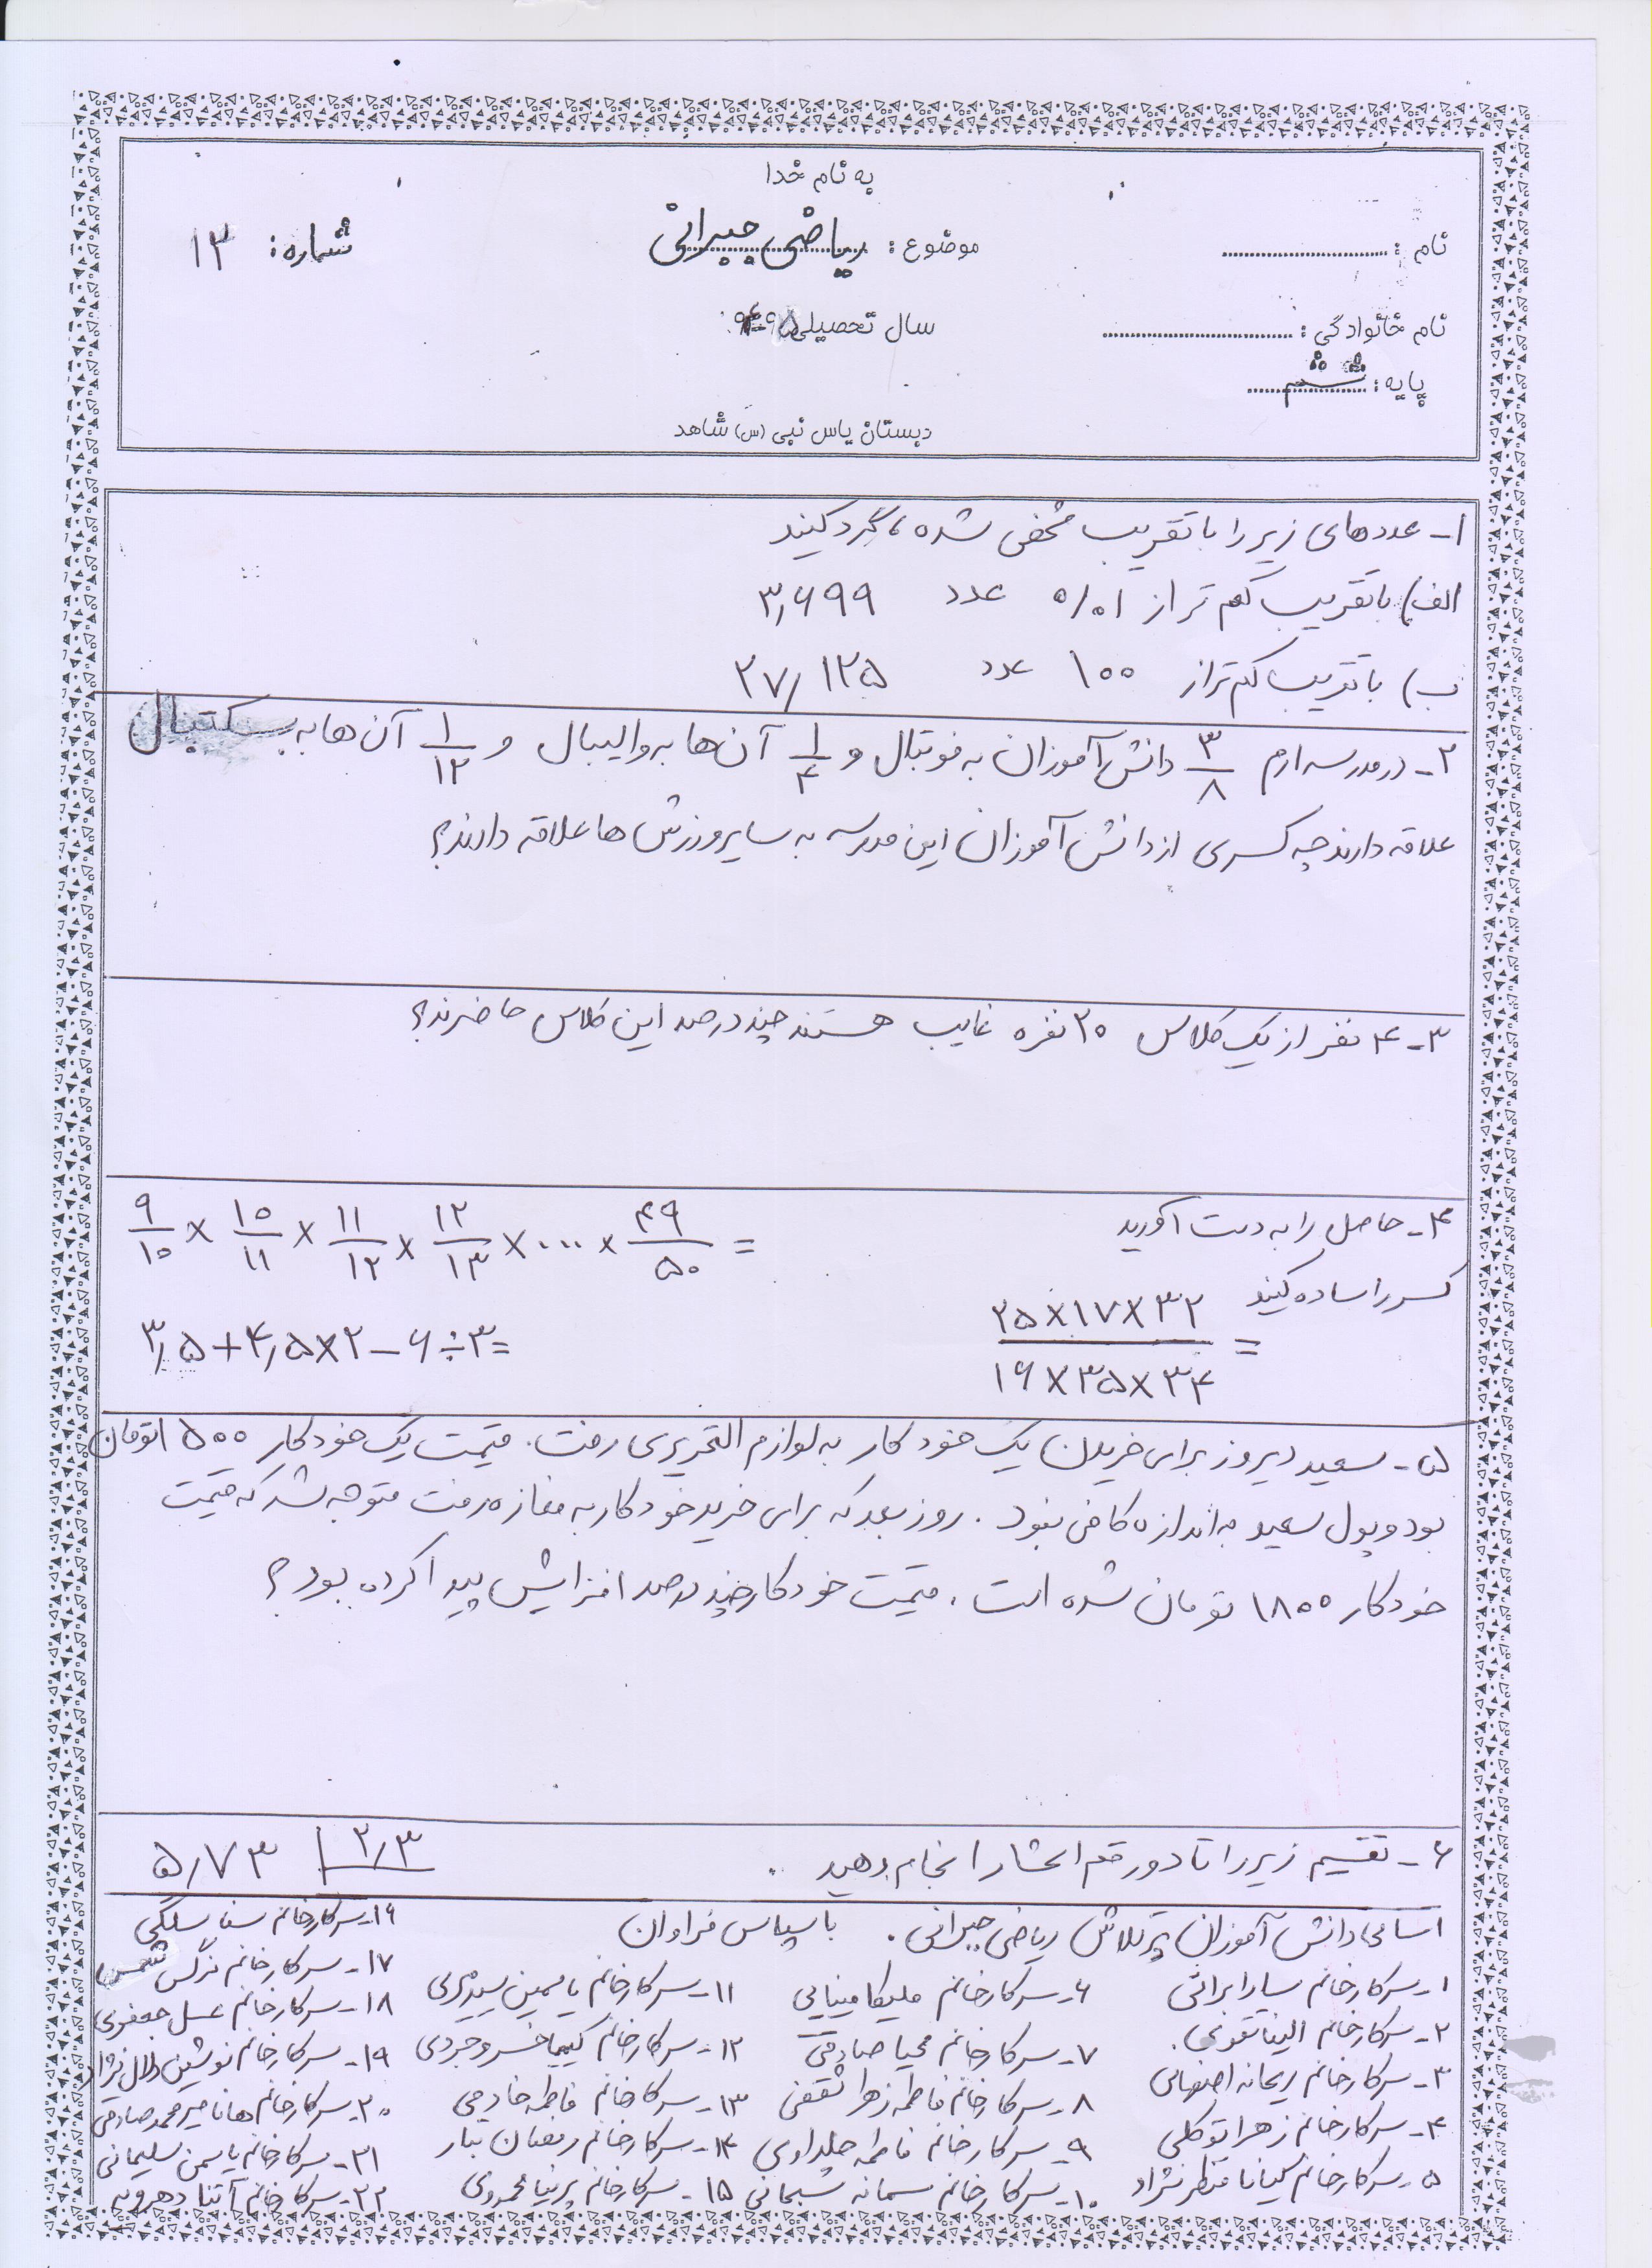 به نام خدا
نام : ............................ موضوع : ریاضی جبرانی شماره: ۱۳
نام خانوادگی : ................................ سال تحصیلی
پایه: ششم
دبستان یاس نبی (س) شاهد
۱- عددهای زیر را با تقریب مشخص شده، گرد کنید
الف) با تقریب کم تر از ۰/۰۱ عدد ۳٫۶۹۹
ب) با تقریب کم تر از ۱۰۰ عدد ۲۷/۱۲۵
۲- در مدرسه ارم ۳/۸ دانش آموزان به فوتبال و ۱/۴ آن ها به والیبال و ۱/۱۲ آن ها به بسکتبال
علاقه دارند چه کسری از دانش آموزان این مدرسه به سایر ورزش ها علاقه دارند؟
۳- ۴ نفر از یک کلاس ۲۰ نفره غایب هستند چند درصد این کلاس حاضرند؟
۴- حاصل را به دست آورید ۹/۱۰ × ۱۰/۱۱ × ۱۱/۱۲ × ۱۲/۱۳ × .... × ۴۹/۵۰ =
کسر را ساده کنید ۲۵×۱۷×۳۲ / ۱۶×۳۵×۳۴ =
۳٫۵+۴٫۵×۲-۶÷۳=
۵- سعید دیروز برای خریدن یک خودکار به لوازم التحریری رفت. قیمت یک خودکار ۱۵۰۰ تومان
بود و پول سعید به اندازه کافی نبود. روز بعد که برای خرید خودکار به مغازه رفت متوجه شد که قیمت
خودکار ۱۸۰۰ تومان شده است. قیمت خودکار چند درصد افزایش پیدا کرده بود؟
۶- تقسیم زیر را تا دو رقم اعشار انجام دهید. ۵٫۷۳ | ۲٫۳
اسامی دانش آموزان پرتلاش ریاضی جبرانی. با سپاس فراوان
۱- سرکار خانم سارا براتی
۲- سرکار خانم الینا تقوی.
۳- سرکار خانم ریحانه اصفهانی
۴- سرکار خانم زهرا توکلی
۵- سرکار خانم کیانا منظر نژاد
۶- سرکار خانم ملیکا مینایی
۷- سرکار خانم محیا صادقی
۸- سرکار خانم فاطمه زهرا ثقفی
۹- سرکار خانم فاطمه جلداوی
۱۰- سرکار خانم سمانه سبحانی
۱۱- سرکار خانم یاسمین
۱۲- سرکار خانم کیمیا خسروجردی
۱۳- سرکار خانم فاطمه خادمی
۱۴- سرکار خانم
۱۵- سرکار خانم پرنیا محمودی
۱۶- سرکار خانم سنا سلگی
۱۷- سرکار خانم نرگس شمس
۱۸- سرکار خانم عسل جعفری
۱۹- سرکار خانم نوشین دلال نژاد
۲۰- سرکار خانم هانا میرمحمدصادقی
۲۱- سرکار خانم یاسمن سلیمانی
۲۲- سرکار خانم آتنا دهرویه